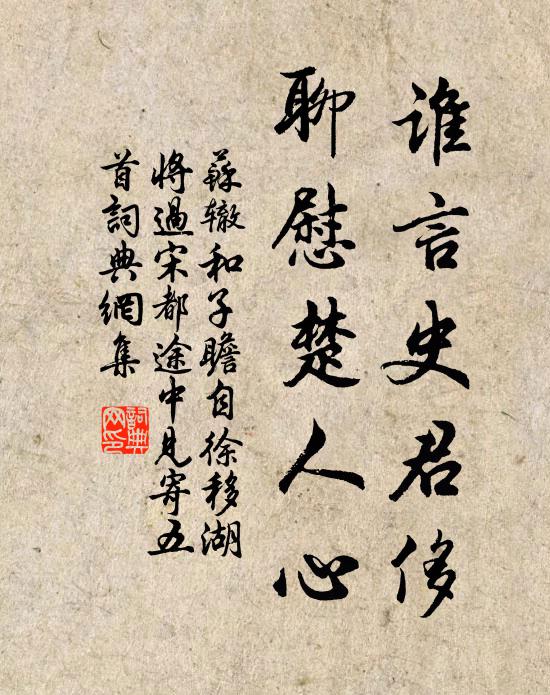 谁言史君侈
聊慰楚人心
蘇辙和子瞻自徐移湖
將過宋都途中見寄五
首詞典網集
詞典
网印